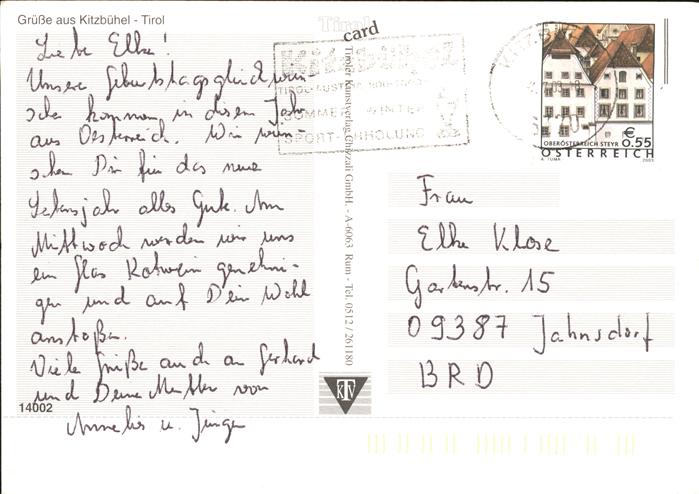 Grüße aus Kitzbühel - Tirol
Liebe Elke!
Unsere Geburtstagsglückwün-
sche kommen in diesem Jahr
aus Oesterreich. Wir wün-
schen Dir für das neue
Lebensjahr alles Gute. Am
Mittwoch werden wir uns
ein Glas Rotwein genehmi-
gen und auf Dein Wohl
anstoßen.
Viele Grüße auch an Gerhard
und Deine Mutter von
Annelies u. Jürgen
14002
Tirol
card
Tiroler Kunstverlag Chizzali GmbH. - A-6063 Rum - Tel. 0512 / 261180
KTV
Kitzbühel
TIROL-AUSTRIA
SOMMER WINTER
SPORT-ERHOLUNG
OBERÖSTERREICH STEYR
€ 0,55
ÖSTERREICH
A. TUMA 2003
Frau
Elke Klose
Gartenstr. 15
09387 Jahnsdorf
BRD